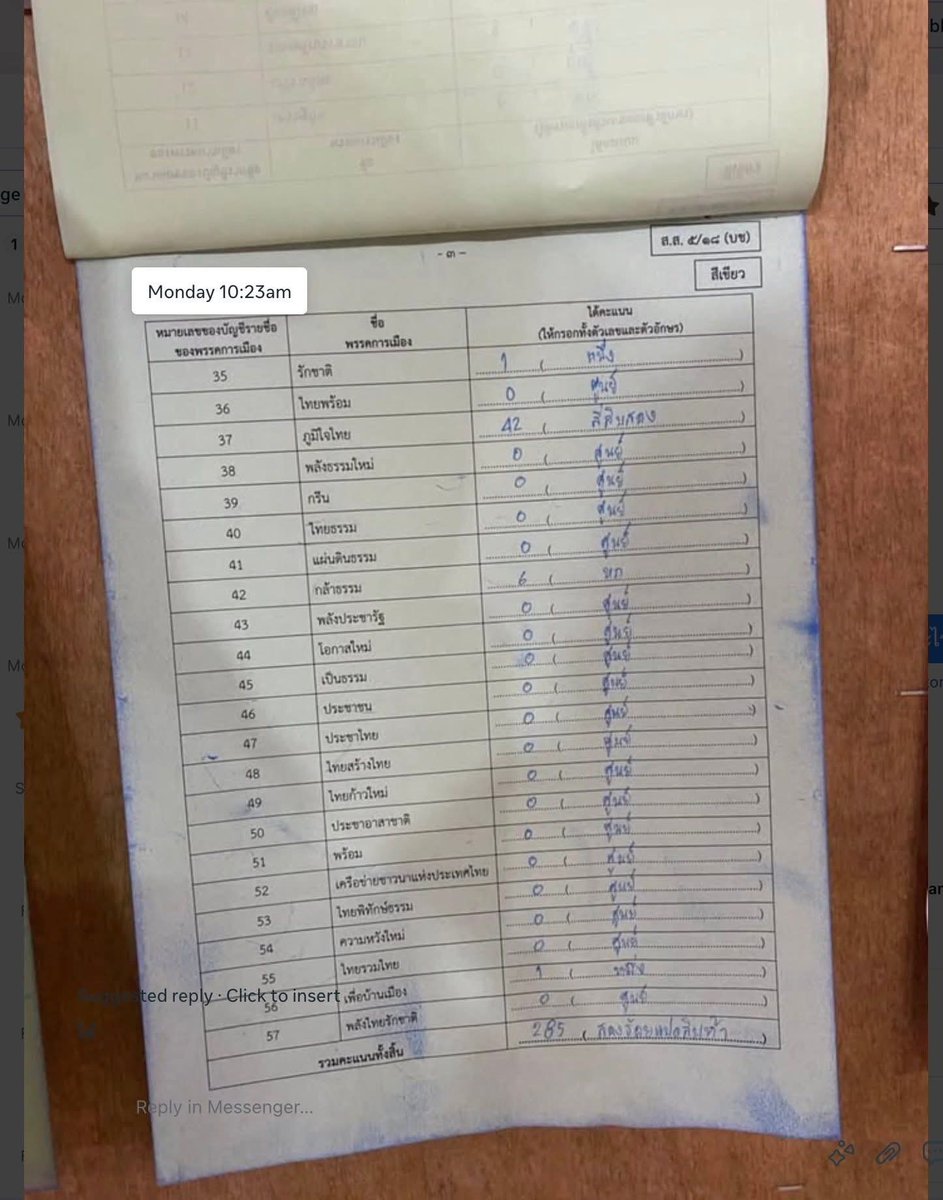 - ๓ -
ส.ส. ๕/๑๘ (บช)
สีเขียว
Monday 10:23am
หมายเลขของบัญชีรายชื่อ
ของพรรคการเมือง
ชื่อ
พรรคการเมือง
ได้คะแนน
(ให้กรอกทั้งตัวเลขและตัวอักษร)
35 รักชาติ 1 ( หนึ่ง )
36 ไทยพร้อม 0 ( ศูนย์ )
37 ภูมิใจไทย 42 ( สี่สิบสอง )
38 พลังธรรมใหม่ 0 ( ศูนย์ )
39 กรีน 0 ( ศูนย์ )
40 ไทยธรรม 0 ( ศูนย์ )
41 แผ่นดินธรรม 0 ( ศูนย์ )
42 กล้าธรรม 6 ( หก )
43 พลังประชารัฐ 0 ( ศูนย์ )
44 โอกาสใหม่ 0 ( ศูนย์ )
45 เป็นธรรม 0 ( ศูนย์ )
46 ประชาชน 0 ( ศูนย์ )
47 ประชาไทย 0 ( ศูนย์ )
48 ไทยสร้างไทย 0 ( ศูนย์ )
49 ไทยก้าวใหม่ 0 ( ศูนย์ )
50 ประชาอาสาชาติ 0 ( ศูนย์ )
51 พร้อม 0 ( ศูนย์ )
52 เครือข่ายชาวนาแห่งประเทศไทย 0 ( ศูนย์ )
53 ไทยพิทักษ์ธรรม 0 ( ศูนย์ )
54 ความหวังใหม่ 0 ( ศูนย์ )
55 ไทยรวมไทย 0 ( ศูนย์ )
56 เพื่อบ้านเมือง 1 ( หนึ่ง )
57 พลังไทยรักชาติ 0 ( ศูนย์ )
รวมคะแนนทั้งสิ้น 285 ( สองร้อยแปดสิบห้า )
Suggested reply · Click to insert
Reply in Messenger...